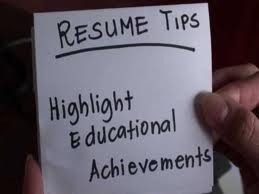 RESUME TIPS
Highlight
Educational
Achievements